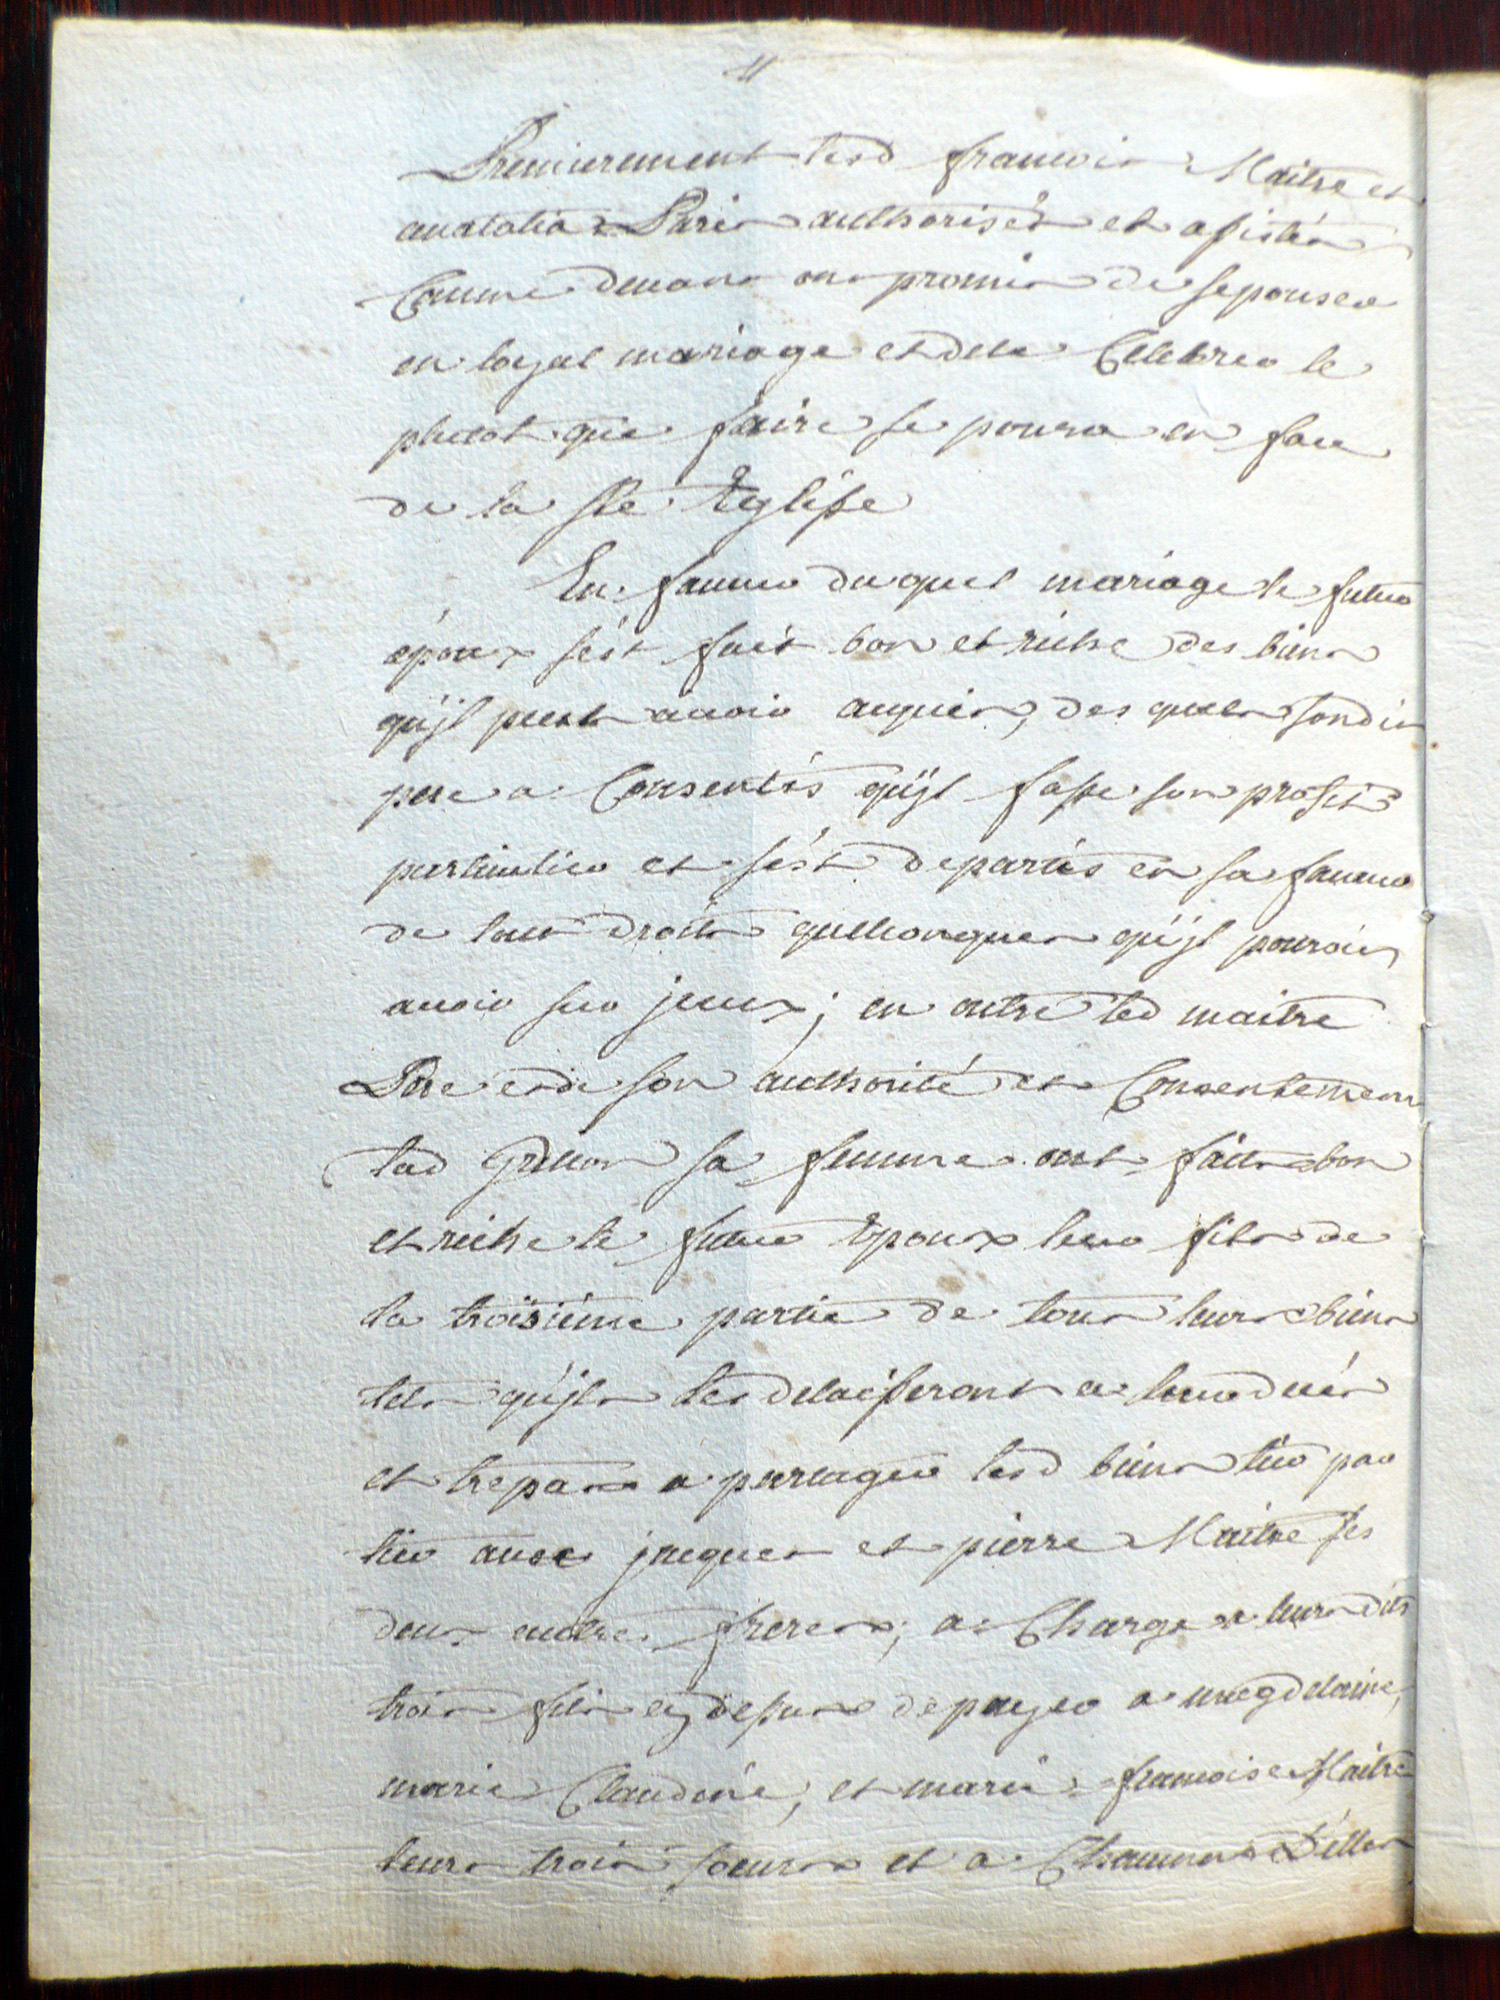 Premierement lesd francois Maitre et
anatolia Paris authorisés et assistés
Comme devans ons promis de sepouser
en loyal mariage et dele Celebrer le
plutot que faire se poura en face
de la Ste Eglise
En faveur duquel mariage le futur
époux s'est fait bon et riche des biens
qu'jl peut avoir acquis, des quels sondit
pere a Consentis qu'jl fasse son profit
particulier et s'est departis en sa faveur
de tous droits quelconques qu'jl pourois
avoir sur jceux; en outre led maitre
Pere et de son authorité et Consentement
lad femme ont faits bon
et riche le futur Epoux leur fils de
la troisiéme partie de tous leurs biens
tels qu'jls les delaisseront a leur decés
et trepas a partager lesd biens tier par
tier avec jacques et pierre Maitre ses
deux autres freres; a Charge a leurs dits
trois fils cy dessus de payer a magdelaine,
marie Claudine, et marie francoise Maitre
leurs trois soeurs et a Chacunes D'elles